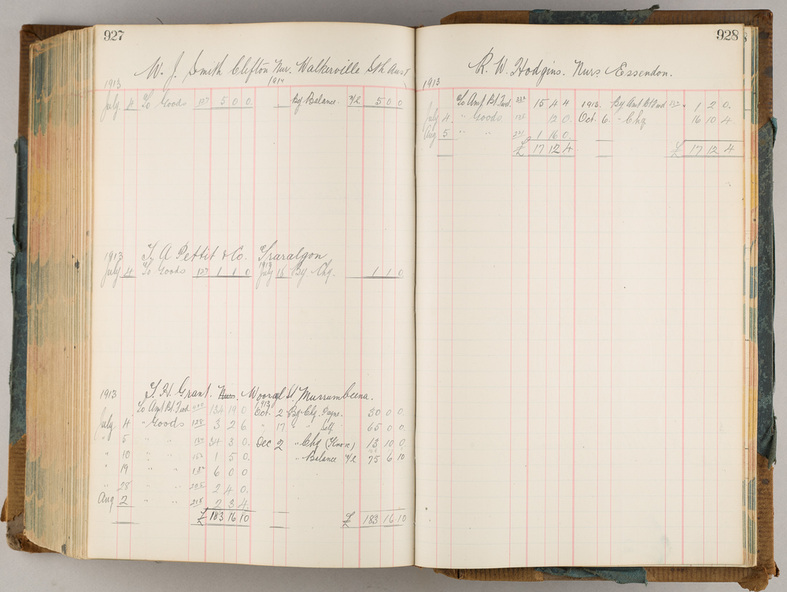 927
W. J. Smith Clifton Nur. Walkerville Sth Aust
1913 1914
July 4 To Goods 127 5 0 0 By Balance 42 5 0 0
1913 T. A. Pettit & Co. Traralgon
July 4 To Goods 127 1 1 0 July 16 By Chq. 1 1 0
1913 T. H. Grant. Nurs. St Murrumbeena.
To Amt Bt Fwd. 134 19 0 Oct 2 By Chq. 30 0 0
July 4 " Goods 3 2 6 " 17 " " Self 65 0 0
" 5 " " 34 3 0 Dec 2 " Chq 13 10 0
" 10 " " 1 5 0 " Balance 42 75 6 10
" 19 " " 6 0 0
" 28 " " 2 4 0
Aug 2 " " 2 3 4
£ 183 16 10 £ 183 16 10
928
R. W. Hodgins. Nurs Essendon.
1913
To Amt Bt Fwd. 15 4 4 1913 By Amt Bt Fwd 1 2 0
July 4 " Goods 12 0 Oct. 6 " Chq 16 10 4
Aug 5 " " 1 16 0
£ 17 12 4 £ 17 12 4